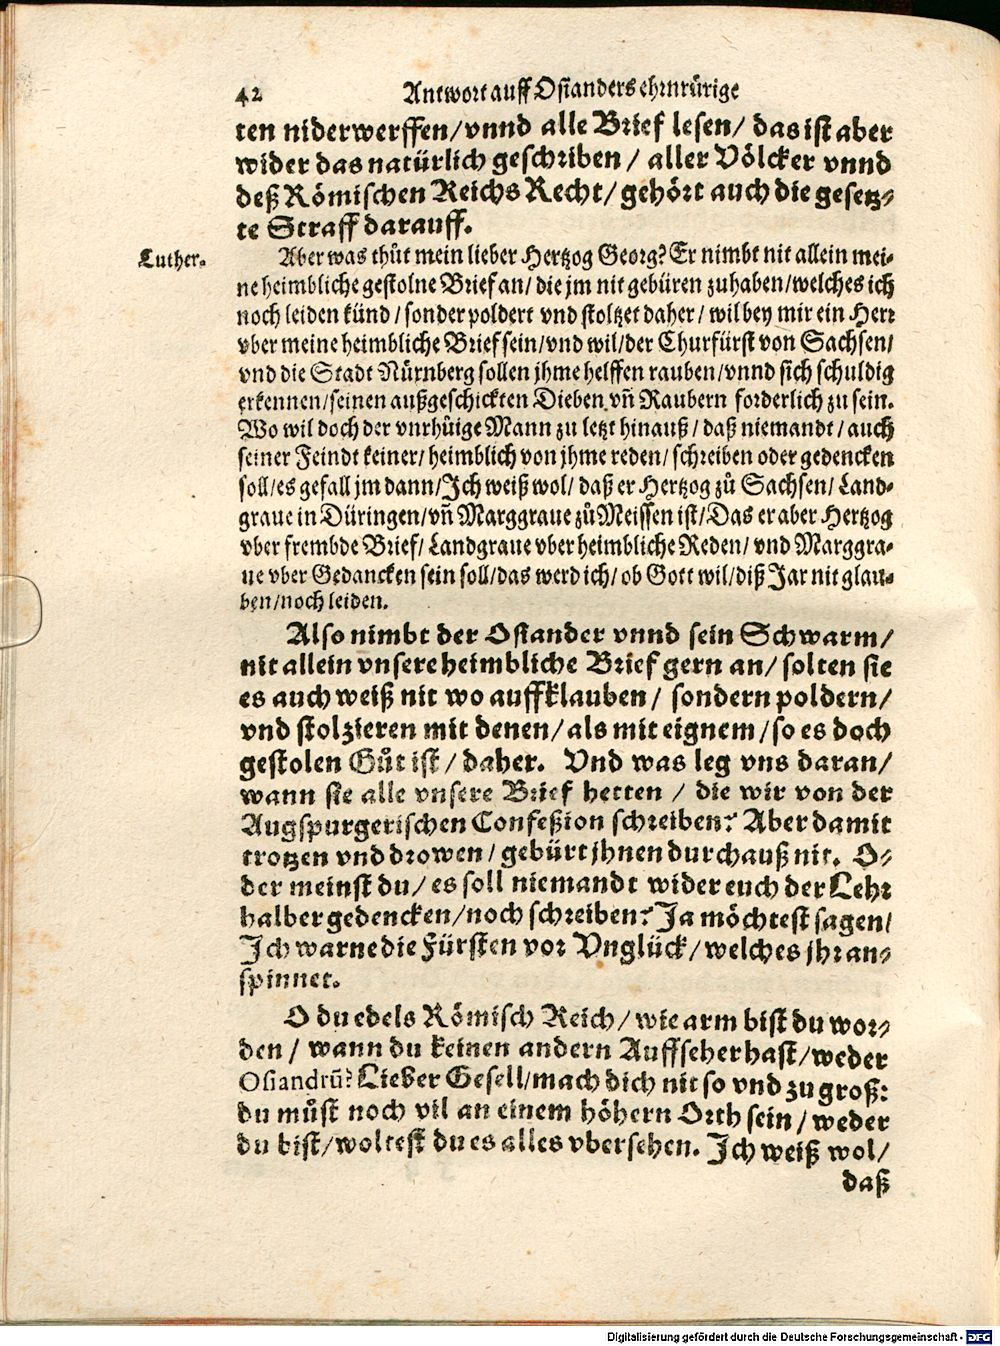 42 Antwort auff Osianders ehrnrürige
ten niderwerffen/vnnd alle Brief lesen/ das ist aber
wider das natürlich geschriben / aller Völcker vnnd
deß Römischen Reichs Recht/ gehört auch die gesetz-
te Straff darauff.
Luther. Aber was thůt mein lieber Hertzog Georg? Er nimbt nit allein mei-
ne heimbliche gestolne Brief an/ die jm nit gebüren zu haben/welches ich
noch leiden künd/ sonder poldert vnd stoltzet daher/ wil bey mir ein Herr
vber meine heimbliche Brief sein/vnd wil/der Churfürst von Sachsen/
vnd die Stadt Nürnberg sollen jhme helffen rauben/vnnd sich schuldig
erkennen/seinen außgeschickten Dieben vñ Raubern forderlich zu sein.
Wo wil doch der vnrhüige Mann zu letzt hinauß/ daß niemandt/ auch
seiner Feindt keiner/ heimblich von jhme reden/ schreiben oder gedencken
soll/es gefall jm dann/Ich weiß wol/ daß er Hertzog zů Sachsen/ Land-
graue in Düringen/vñ Marggraue zů Meissen ist/Das er aber Hertzog
vber frembde Brief/ Landgraue vber heimbliche Reden/ vnd Marggra-
ue vber Gedancken sein soll/das werd ich/ ob Gott wil/diß Jar nit glau-
ben/noch leiden.
Also nimbt der Osiander vnnd sein Schwarm/
nit allein vnsere heimbliche Brief gern an/ solten sie
es auch weiß nit wo auffklauben/ sondern poldern/
vnd stolzieren mit denen/als mit eignem/so es doch
gestolen Gůt ist/ daher. Vnd was leg vns daran/
wann sie alle vnsere Brief hetten / die wir von der
Augspurgerischen Confeßion schreiben? Aber damit
trotzen vnd drowen/gebürt jhnen durchauß nit. O-
der meinst du/ es soll niemandt wider euch der Lehr
halber gedencken/noch schreiben? Ja möchtest sagen/
Ich warne die Fürsten vor Vnglück/welches jhr an-
spinnet.
O du edels Römisch Reich/ wie arm bist du wor-
den/ wann du keinen andern Auffseher hast/weder
Osiandrū? Lieber Gesell/mach dich nit so vnd zu groß:
du můst noch vil an einem höhern Orth sein/ weder
du bist/woltest du es alles vbersehen. Ich weiß wol/
daß
Digitalisierung gefördert durch die Deutsche Forschungsgemeinschaft - DFG